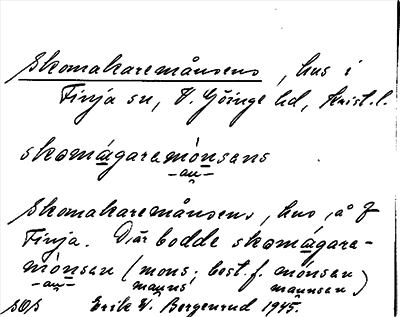 Skomakaremånsens, hus i
Finja sn, V. Göinge hd, Krist. l.
skomágaremónsens
-au-
Skomakaremånsens, hus, å F
Finja. Där bodde skomágare-
mónsen (mons; best. f. mónsen)
-au- mauns maunsen
SOS Erik W. Bergenrud 1945.